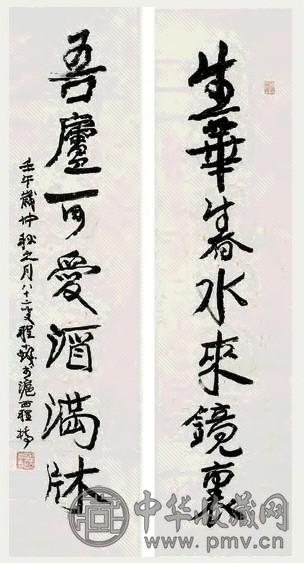 生華春水來鏡裏
吾廬可愛酒滿牀
壬午歲仲秋之月八十二叟程十髮
中华收藏网
www.pmv.cn